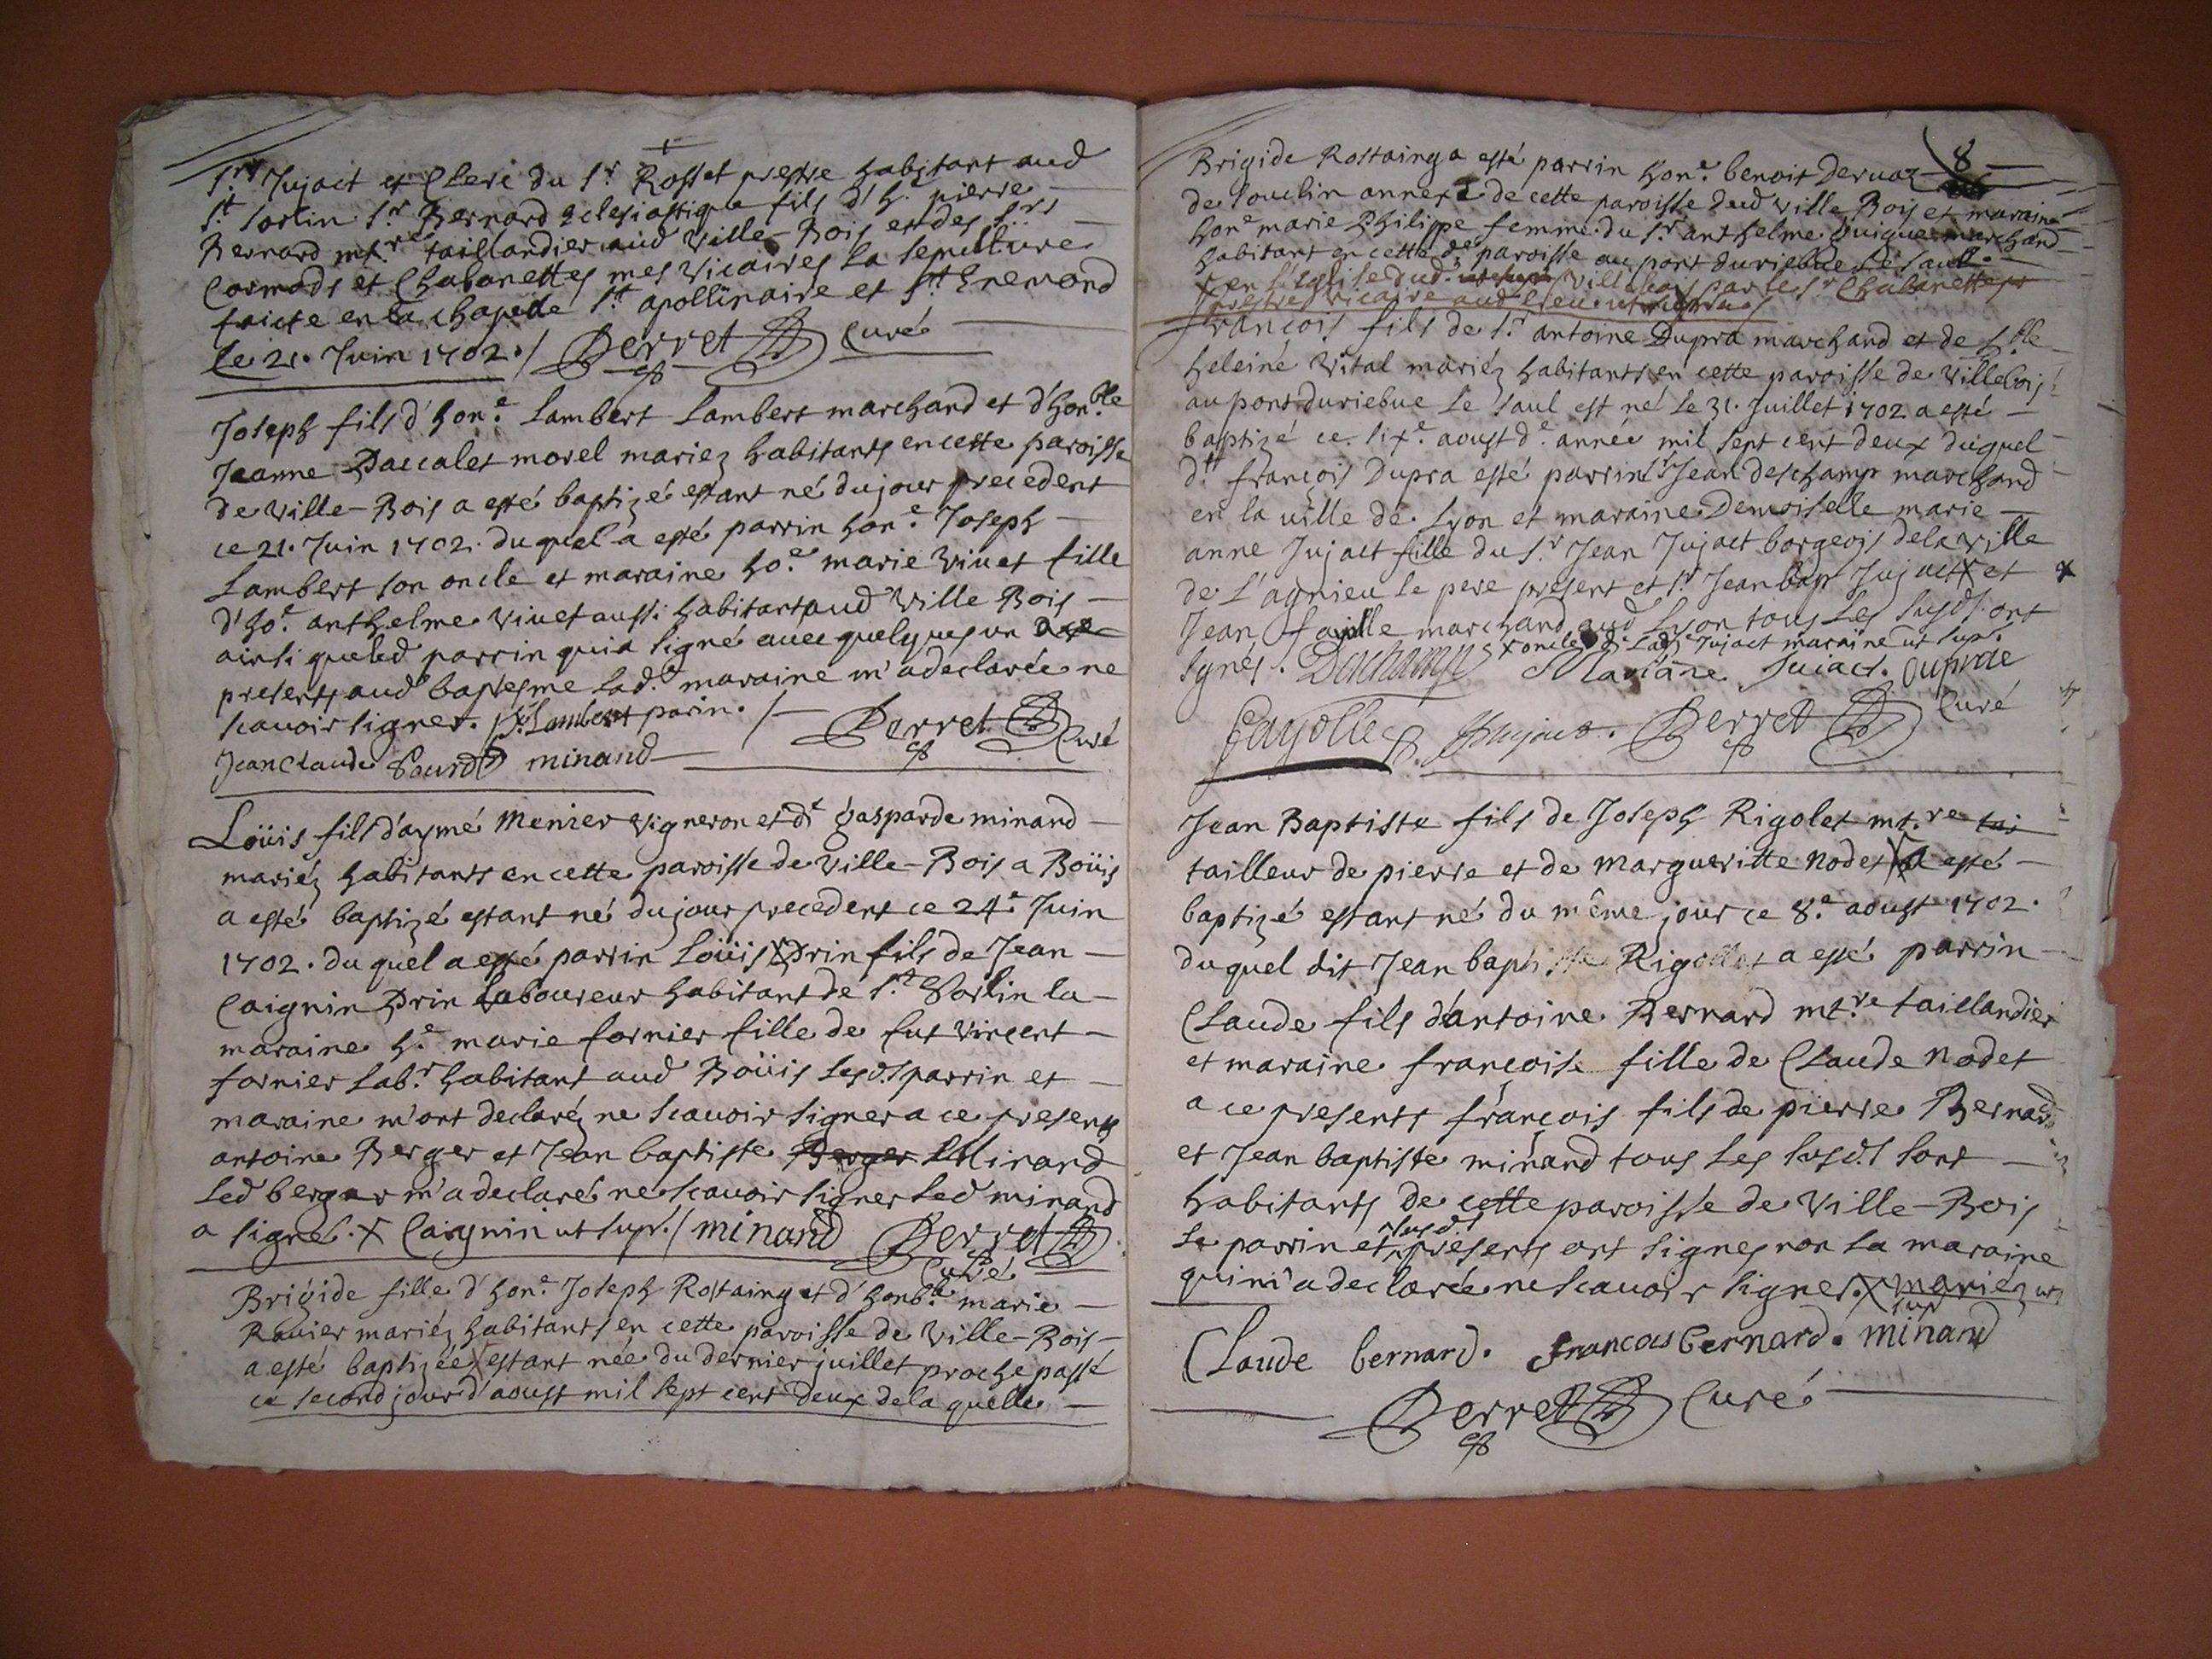 Srs Jujact et Clerc du Sr Rosset prestre habitant aud
St Sorlin Sr Bernard eclesiastique fils d'h. pierre
Bernard mtre taillandier aud Ville-Bois et des Srs
Cormods et Chabanettes mes vicaires la sepulture
faicte en la chapelle St apollinaire et St Enemond
le 21. Juin 1702. / Perret Curé
Joseph fils d'hone Lambert Lambert marchand et d'honble
Jeanne Pascalet morel mariez habitants en cette paroisse
de Ville-Bois a esté baptizé estant né du jour precedent
ce 21. Juin 1702. du quel a esté parrin hone Joseph
Lambert son oncle et maraine hoe marie Vivet fille
d'hoe anthelme Vivet aussi habitant aud Ville Bois
ainsi queled parrin qui a signé avec quelques un
presents aud baptesme lade maraine m'a declarée ne
scavoir signer. Lambert parin. / Perret Curé
Jean Claude minand
Loüis fils d'aymé Menier vigneron et de gasparde minand
mariéz habitants en cette paroisse de Ville-Bois a Boüis
a esté baptizé estant né du jour precedent ce 24e Juin
1702. du quel a esté parrin Loüis X Prin fils de Jean
Caignin Prin laboureur habitant de St Sorlin la
maraine he marie fornier fille de fut Vincent
fornier labr habitant aud Boüis lesds parrin et
maraine m'ont declaréz ne scavoir signer a ce presents
antoine Berger et Jean baptiste Berger Minand
led berger m'a declaré ne scavoir signer led minand
a signé. X Caignin ut supr. / minand Perret
Curé
Brigide fille d'hone Joseph Rostaing et d'honble marie
Ravier mariéz habitants en cette paroisse de Ville-Bois
a esté baptizée X estant née du dernier juillet proche passé
ce second jour d'aoust mil sept cent deux de la quelle
8
Brigide Rostaing a esté parrin hone benoit Dervaz
de Souclin annexe de cette paroisse dud Ville Bois et maraine
hone marie Philippe femme du Sr anthelme Guigue marchand
habitant en cette de paroisse au port duriebue le Saul.
X en l'Eglise dud. Ville bois par le Sr Chabanettes
prestre vicaire aud lieu ut supra /
François fils de Sr antoine Dupra marchand et de
heleine Vital mariéz habitants en cette paroisse de Villebois
au port duriebue le Saul est né le 31. Juillet 1702 a esté
baptizé ce sixe aoust de année mil sept cent deux duquel
dt françois Dupra esté parrin Sr Jean deschamp marchand
en la ville de Lyon et maraine Demoiselle marie
anne Jujact fille du Sr Jean Jujact borgeois dela ville
de L'agnieu le pere present et Sr Jean bapt Jujact X et
Jean fayolle marchand aud Lyon tous les susds ont
X oncle de lade Jujact maraine ut sup.
signés. Deschamp Mariane Juiact. Duprae
Fayolle Jujact. Perret Curé
Jean Baptiste fils de Joseph Rigolet mtre tai
tailleur de pierre et de Margueritte Nodet X a esté
baptizé estant né du même jour ce 8e aoust 1702.
duquel dit Jean baptiste Rigollet a esté parrin
Claude fils d'antoine Bernard mtre taillandier
et maraine françoise fille de Claude Nodet
a ce presents françois fils de pierre Bernard
et Jean baptiste minand tous les susds sont
habitants de cette paroisse de Ville-Bois
le parrin et susds presents ont signes non la maraine
qui m'a declarée ne scavoir signer. X mariéz ut
supr
Claude bernard. francois bernard. minand
Perret Curé